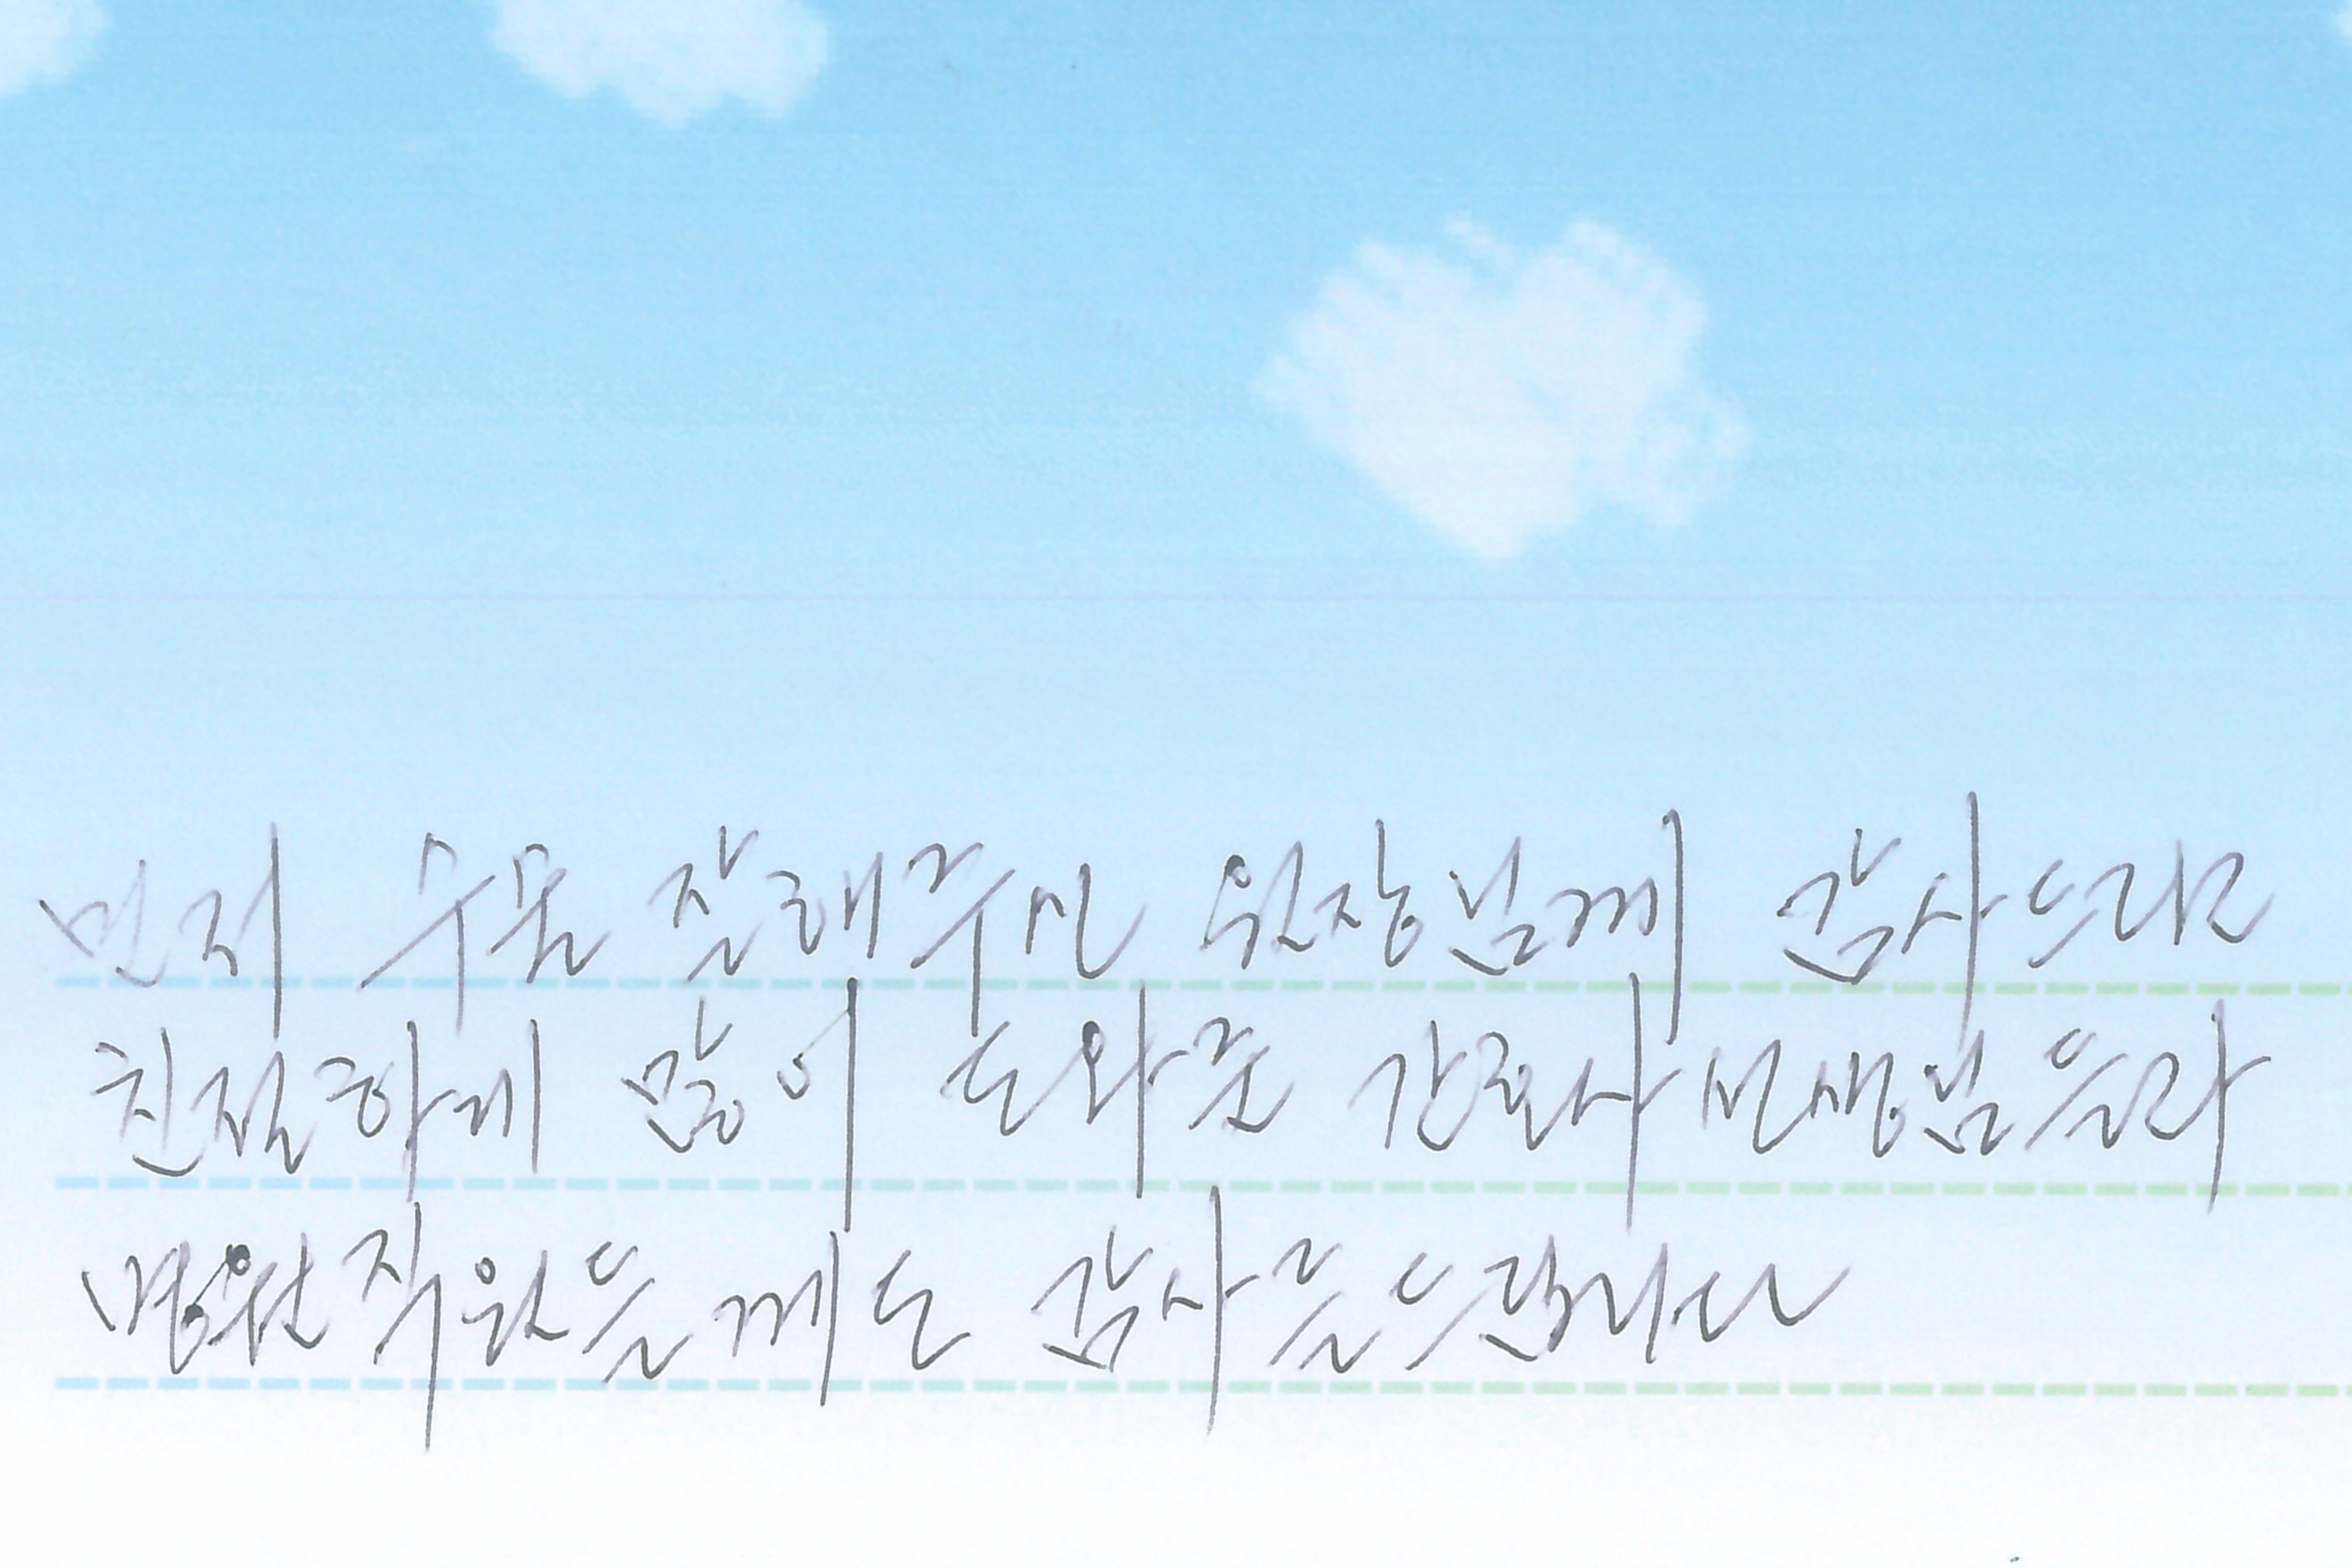 먼저 수술 잘해주신 원장님께 감사드리고
친절하게 많이 도와준 간호사 선생님들과
병원직원들께도 감사를드립니다